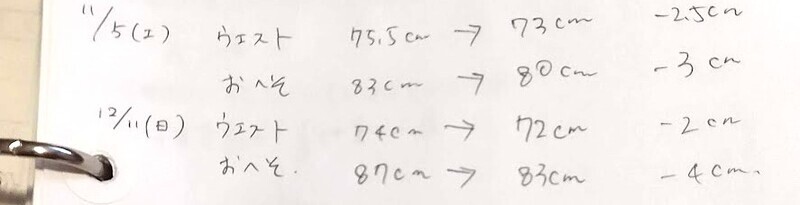 11/5(土) ウエスト 75.5cm → 73cm -2.5cm
おへそ 83cm → 80cm -3cm
12/11(日) ウエスト 74cm → 72cm -2cm
おへそ. 87cm → 83cm -4cm.